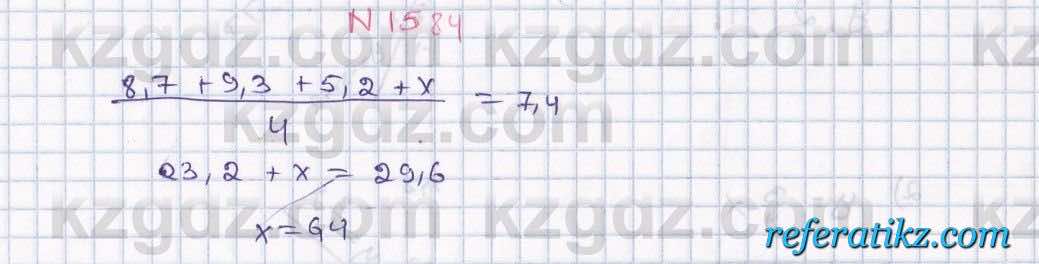 N 1584
kzgdz.com kzgdz.com kz
8,7 + 9,3 + 5,2 + x
= 7,4
4
kzgdz.com
23,2 + x = 29,6
kzgdz.com kzgdz.com kz
x = 64
referatikz.com